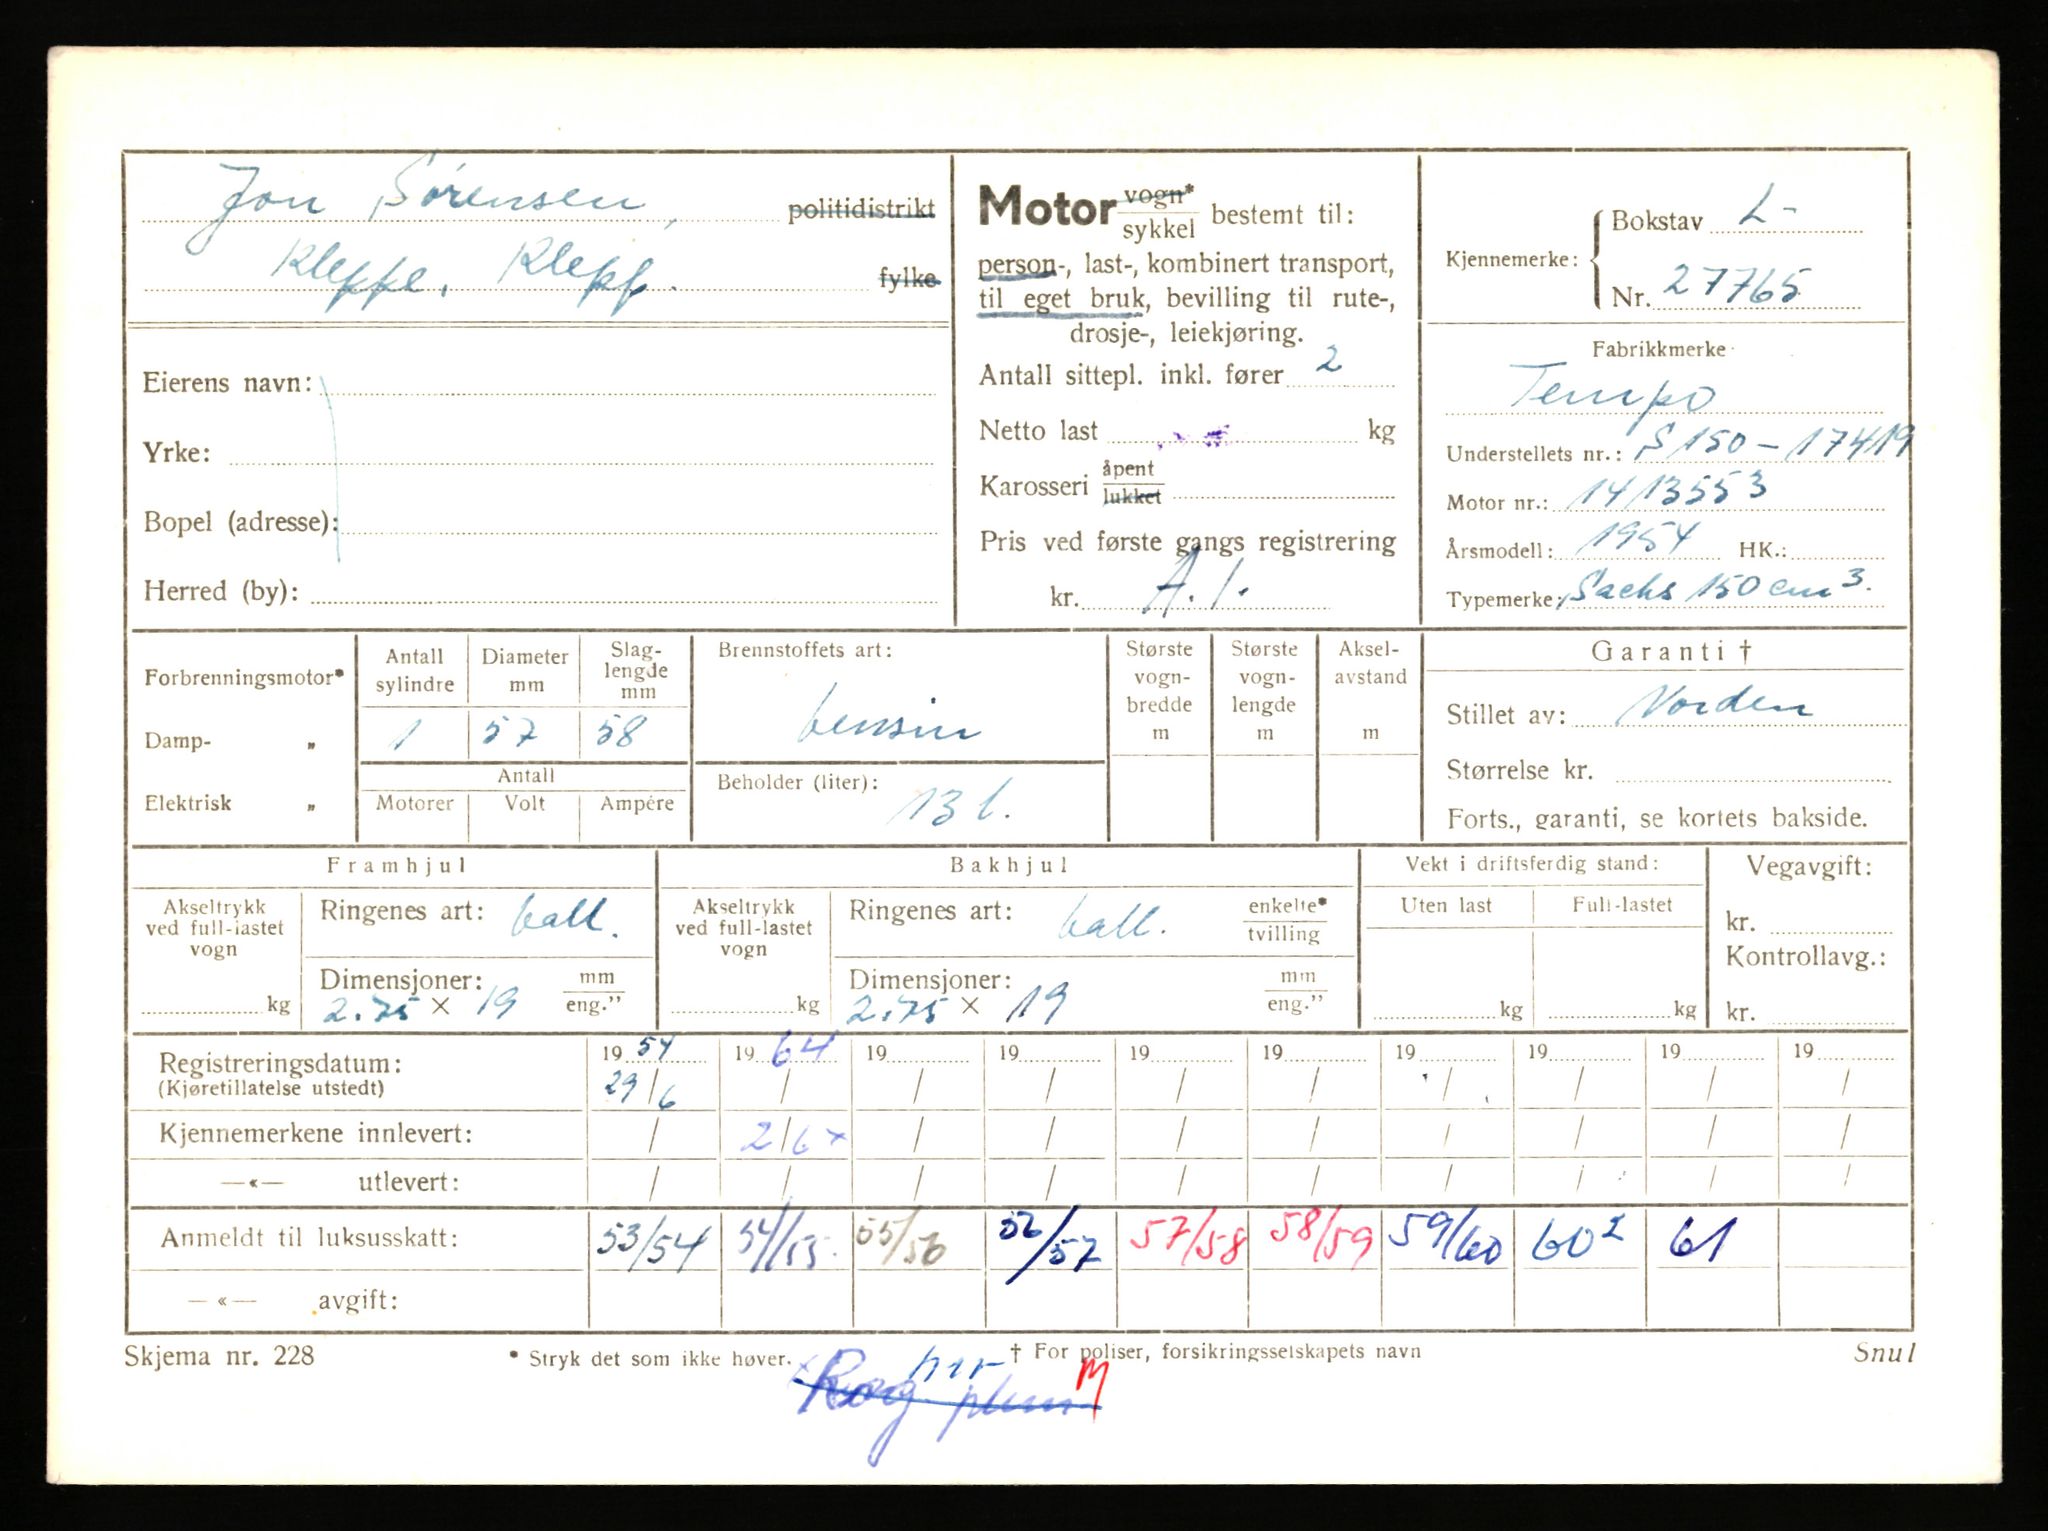 Jon Sørensen, politidistrikt
Kleppe, Klepp. fylke
Eierens navn:
Yrke:
Bopel (adresse):
Herred (by):
Motor vogn* / sykkel bestemt til:
person-, last-, kombinert transport,
til eget bruk, bevilling til rute-,
drosje-, leiekjøring.
Antall sittepl. inkl. fører 2
Netto last kg
Karosseri åpent / lukket
Pris ved første gangs registrering
kr. A. l.
Kjennemerke: Bokstav L-
Nr. 27765
Fabrikkmerke
Tempo
Understellets nr.: S 150 - 17419
Motor nr.: 1413553
Årsmodell: 1954 HK.:
Typemerke: Sachs 150 cm³.
Forbrenningsmotor*
Damp- „
Elektrisk „
Antall sylindre
1
Diameter mm
57
Slag-lengde mm
58
Antall
Motorer Volt Ampére
Brennstoffets art:
bensin
Beholder (liter):
13 l.
Største vogn-bredde m
Største vogn-lengde m
Aksel-avstand m
Garanti †
Stillet av: Norden
Størrelse kr.
Forts., garanti, se kortets bakside.
Framhjul
Akseltrykk ved full-lastet vogn
kg
Ringenes art: ball.
Dimensjoner: mm / eng."
2.75 × 19
Bakhjul
Akseltrykk ved full-lastet vogn
kg
Ringenes art: ball. enkelte* / tvilling
Dimensjoner: mm / eng."
2.75 × 19
Vekt i driftsferdig stand:
Uten last Full-lastet
kg kg
Vegavgift:
kr.
Kontrollavg.:
kr.
Registreringsdatum: 19 54 19 64 19 19 19 19 19 19 19 19
(Kjøretillatelse utstedt) 29/6 / / / / / / / / /
Kjennemerkene innlevert: / 2/6 x / / / / / / / /
—«— utlevert: / / / / / / / / / /
Anmeldt til luksusskatt: 53/54 54/55. 55/56 56/57 57/58 58/59 59/60 60² 61
—«— avgift:
Skjema nr. 228 * Stryk det som ikke høver. † For poliser, forsikringsselskapets navn Snul
M